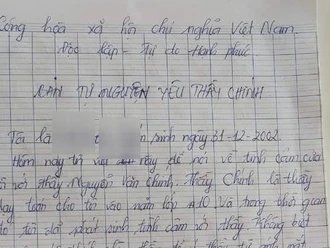 Cộng hòa xã hội chủ nghĩa Việt Nam.
Độc lập - Tự do Hạnh phúc
BẢN TỰ NGUYỆN YÊU THẦY CHỈNH
Tôi là sinh ngày 31-12-2002.
Hôm nay tôi viết này để nói về tình cảm của
thầy Nguyễn Văn Chỉnh. Thầy Chỉnh là thầy
dạy toán cho tôi vào năm lớp A10 Và trong thời gian
đó tôi đã phát sinh tình cảm với thầy không biết